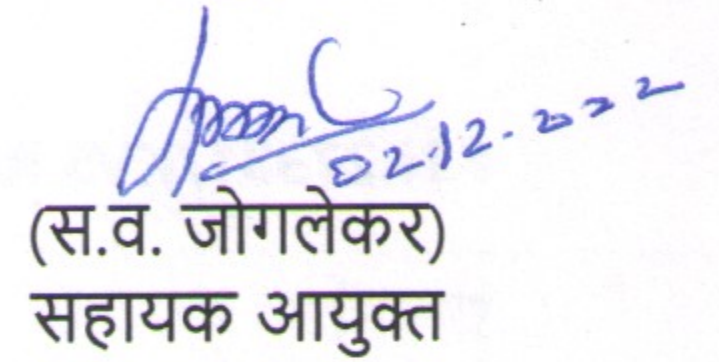 02.12.2022
(स.व. जोगलेकर)
सहायक आयुक्त